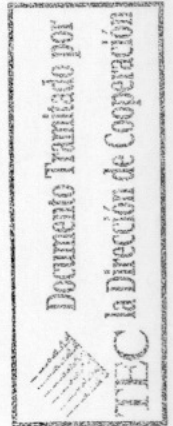 Documento Tramitado por
TEC la Dirección de Cooperación